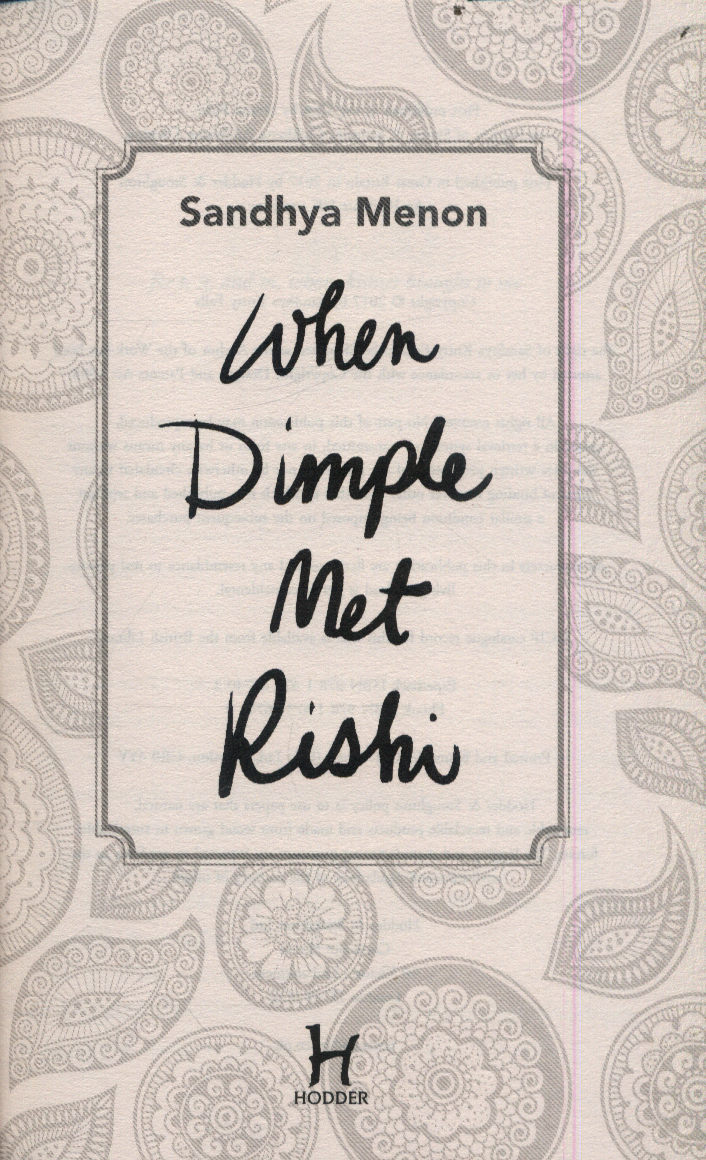 Sandhya Menon
When
Dimple
Met
Rishi
H
HODDER